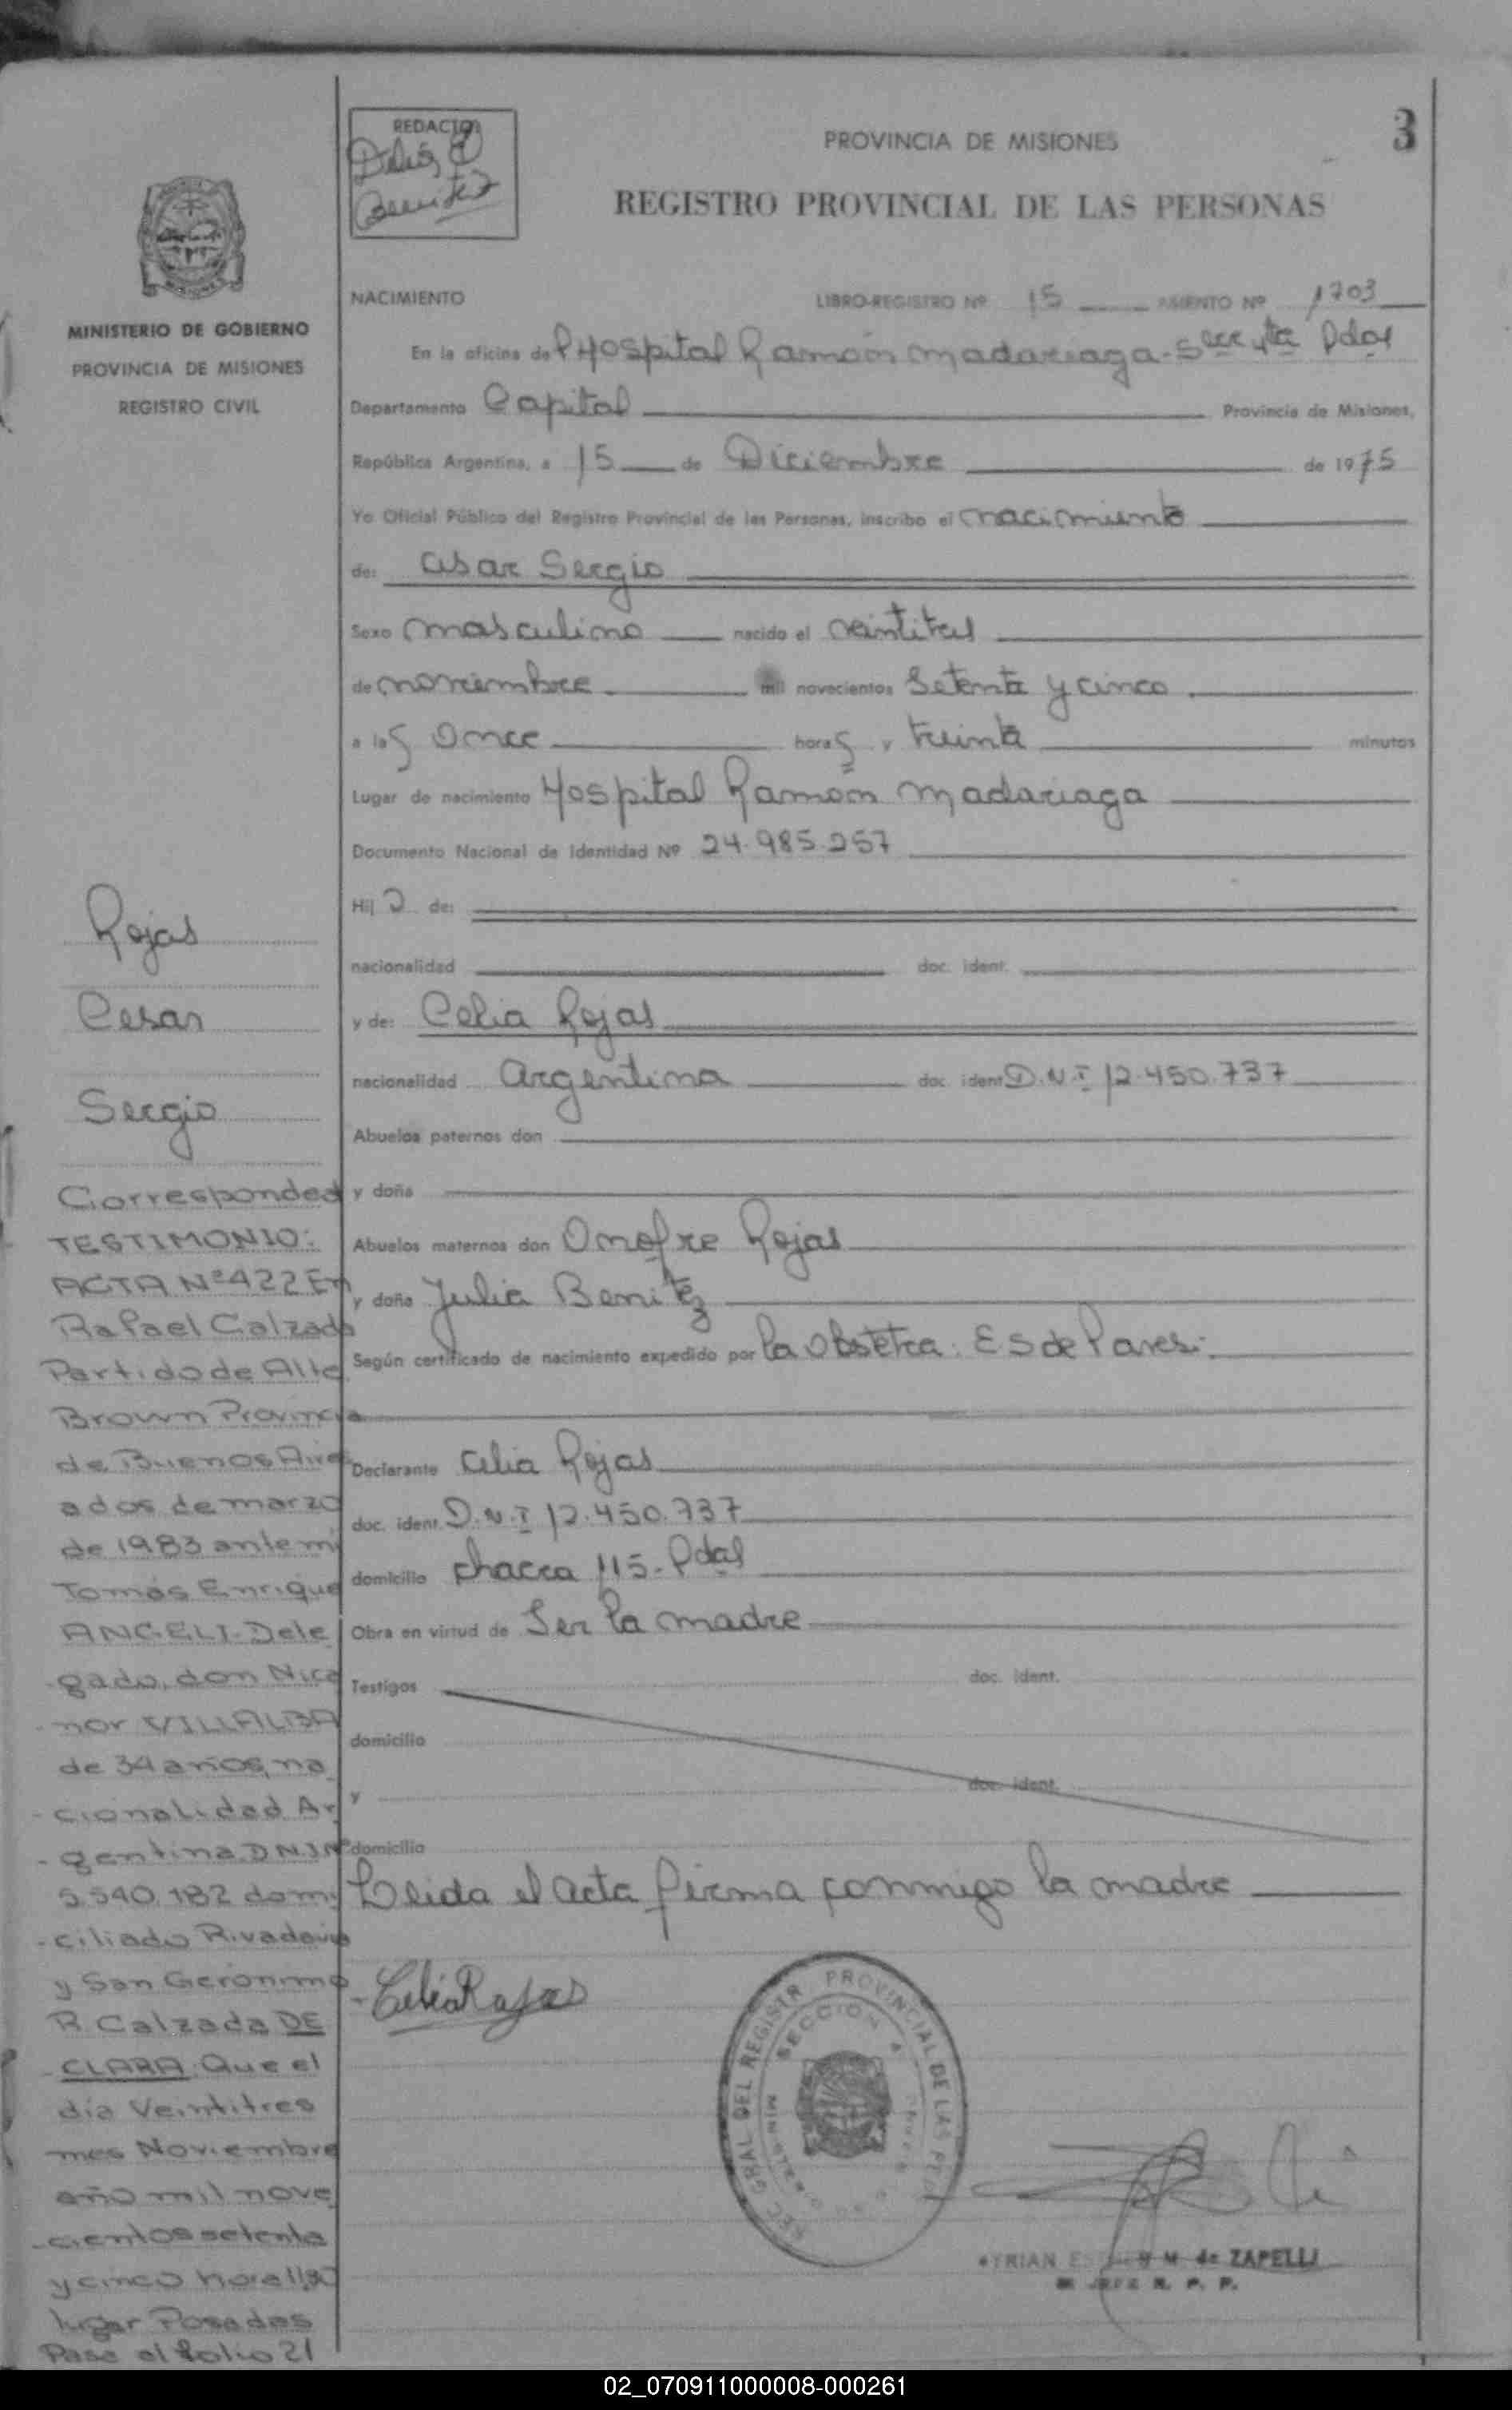 REDACTOR
Benitez
PROVINCIA DE MISIONES
3
REGISTRO PROVINCIAL DE LAS PERSONAS
MINISTERIO DE GOBIERNO
PROVINCIA DE MISIONES
REGISTRO CIVIL
NACIMIENTO LIBRO-REGISTRO Nº 15 ASIENTO Nº 1703
En la oficina de Hospital Ramón Madariaga - Secc 4ta Pdas
Departamento Capital Provincia de Misiones,
República Argentina, a 15 de Diciembre de 1975
Yo Oficial Público del Registro Provincial de las Personas, inscribo el nacimiento
de: Cesar Sergio
Sexo masculino nacido el veintitres
de noviembre mil novecientos Setenta y cinco
a las once horas y treinta minutos
Lugar de nacimiento Hospital Ramón Madariaga
Documento Nacional de Identidad Nº 24.985.257
Hijo de:
nacionalidad doc. ident.
y de: Celia Rojas
nacionalidad Argentina doc. ident. D.N.I 12.450.737
Abuelos paternos don
y doña
Abuelos maternos don Onofre Rojas
y doña Julia Benitez
Según certificado de nacimiento expedido por la Obstetra: E S de Paresi
Declarante Celia Rojas
doc. ident. D.N.I 12.450.737
domicilio chacra 115 - Pdas
Obra en virtud de Ser la madre
Testigos doc. ident.
domicilio
y doc. ident.
domicilio
Leida el acta firma conmigo la madre
Celia Rojas
SEC. GRAL DEL REGISTR. PROVINCIAL DE LAS PER
SECCION 4
M. de ZAPELLI
R. P. P.
Rojas
Cesar
Sergio
Corresponde a
TESTIMONIO:
ACTA Nº 422 En
Rafael Calzada
Partido de Alte
Brown Provincia
de Buenos Aires
a dos de marzo
de 1983 ante mi
Tomás Enrique
ANGELI - Dele
gado, don Nica
nor VILLALBA
de 34 años, na
cionalidad Ar
gentina D N I Nº
5.540.182 domi
ciliado Rivadavia
y San Gerónimo
R. Calzada DE
CLARA: Que el
día Veintitres
mes Noviembre
año mil nove
cientos setenta
y cinco hora 11,30
lugar Posadas
Pasa al folio 21
02_070911000008-000261